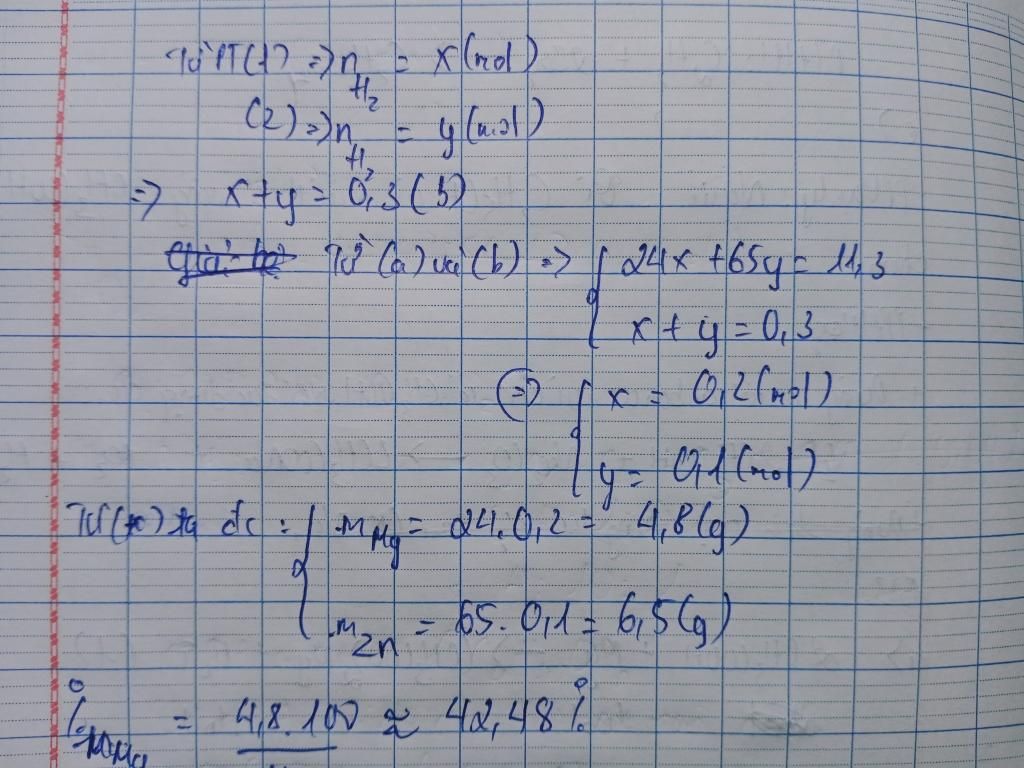 Từ PT(1) => n H2 = x(mol)
(2) => n H2 = y(mol)
=> x+y = 0,3 (b)
Từ (a) và (b) => { 24x + 65y = 11,3
x + y = 0,3
=> { x = 0,2(mol)
y = 0,1(mol)
Từ (*) ta đc : { m Mg = 24.0,2 = 4,8(g)
m Zn = 65.0,1 = 6,5(g)
% mMg = 4,8.100 ≈ 42,48%